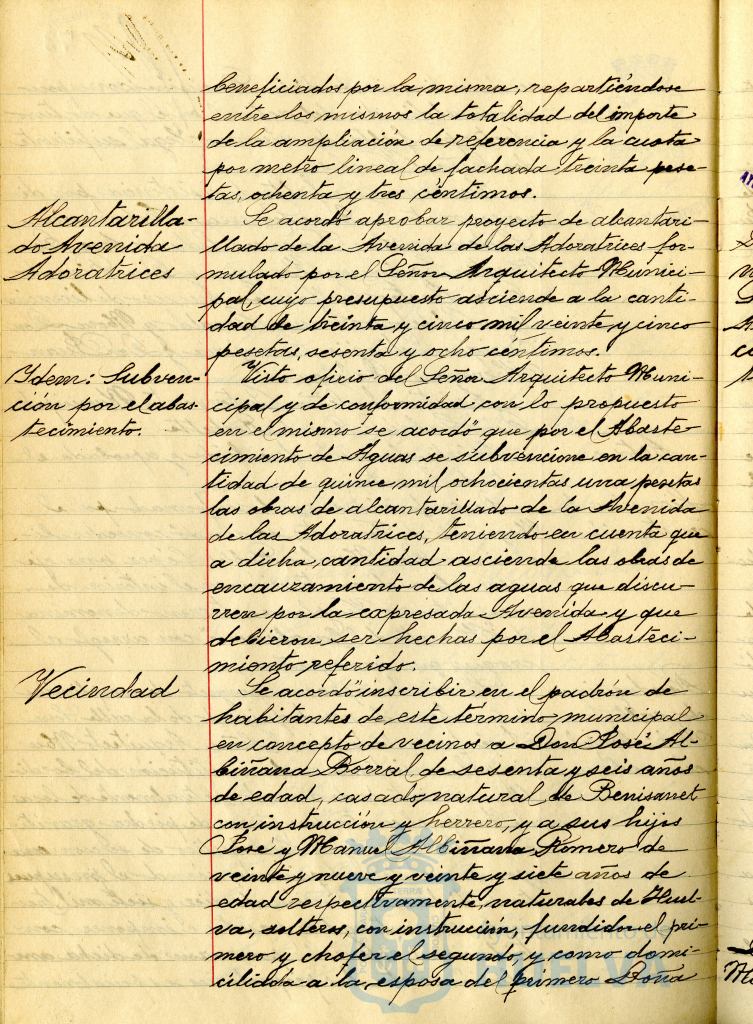 beneficiados por la misma, repartiéndose
entre los mismos la totalidad del importe
de la ampliación de referencia y la cuota
por metro lineal de fachada treinta pese-
tas, ochenta y tres céntimos.
Alcantarilla-
do Avenida
Adoratrices
Se acordó aprobar proyecto de alcantari-
llado de la Avenida de las Adoratrices for-
mulado por el Señor Arquitecto Munici-
pal, cuyo presupuesto asciende a la canti-
dad de treinta y cinco mil veinte y cinco
pesetas, sesenta y ocho céntimos.
Idem: Subven-
ción por el abas-
tecimiento.
Visto oficio del Señor Arquitecto Muni-
cipal y de conformidad con lo propuesto
en el mismo se acordó que por el Abaste-
cimiento de Aguas se subvencione en la can-
tidad de quince mil ochocientas una pesetas
las obras de alcantarillado de la Avenida
de las Adoratrices, teniendo en cuenta que
a dicha cantidad asciende las obras de
encauzamiento de las aguas que discu-
rren por la expresada Avenida y que
debieron ser hechas por el Abasteci-
miento referido.
Vecindad
Se acordó inscribir en el padrón de
habitantes de este término municipal
en concepto de vecinos a Don José Al-
biñana Borral de sesenta y seis años
de edad, casado, natural de Benisanet
con instrucción y herrero, y a sus hijos
José y Manuel Albiñana Romero de
veinte y nueve y veinte y siete años de
edad respectivamente, naturales de Huel-
va, solteros, con instrucción, fundidor el pri-
mero y chofer el segundo, y como domi-
ciliada a la esposa del primero Doña
HUELVA